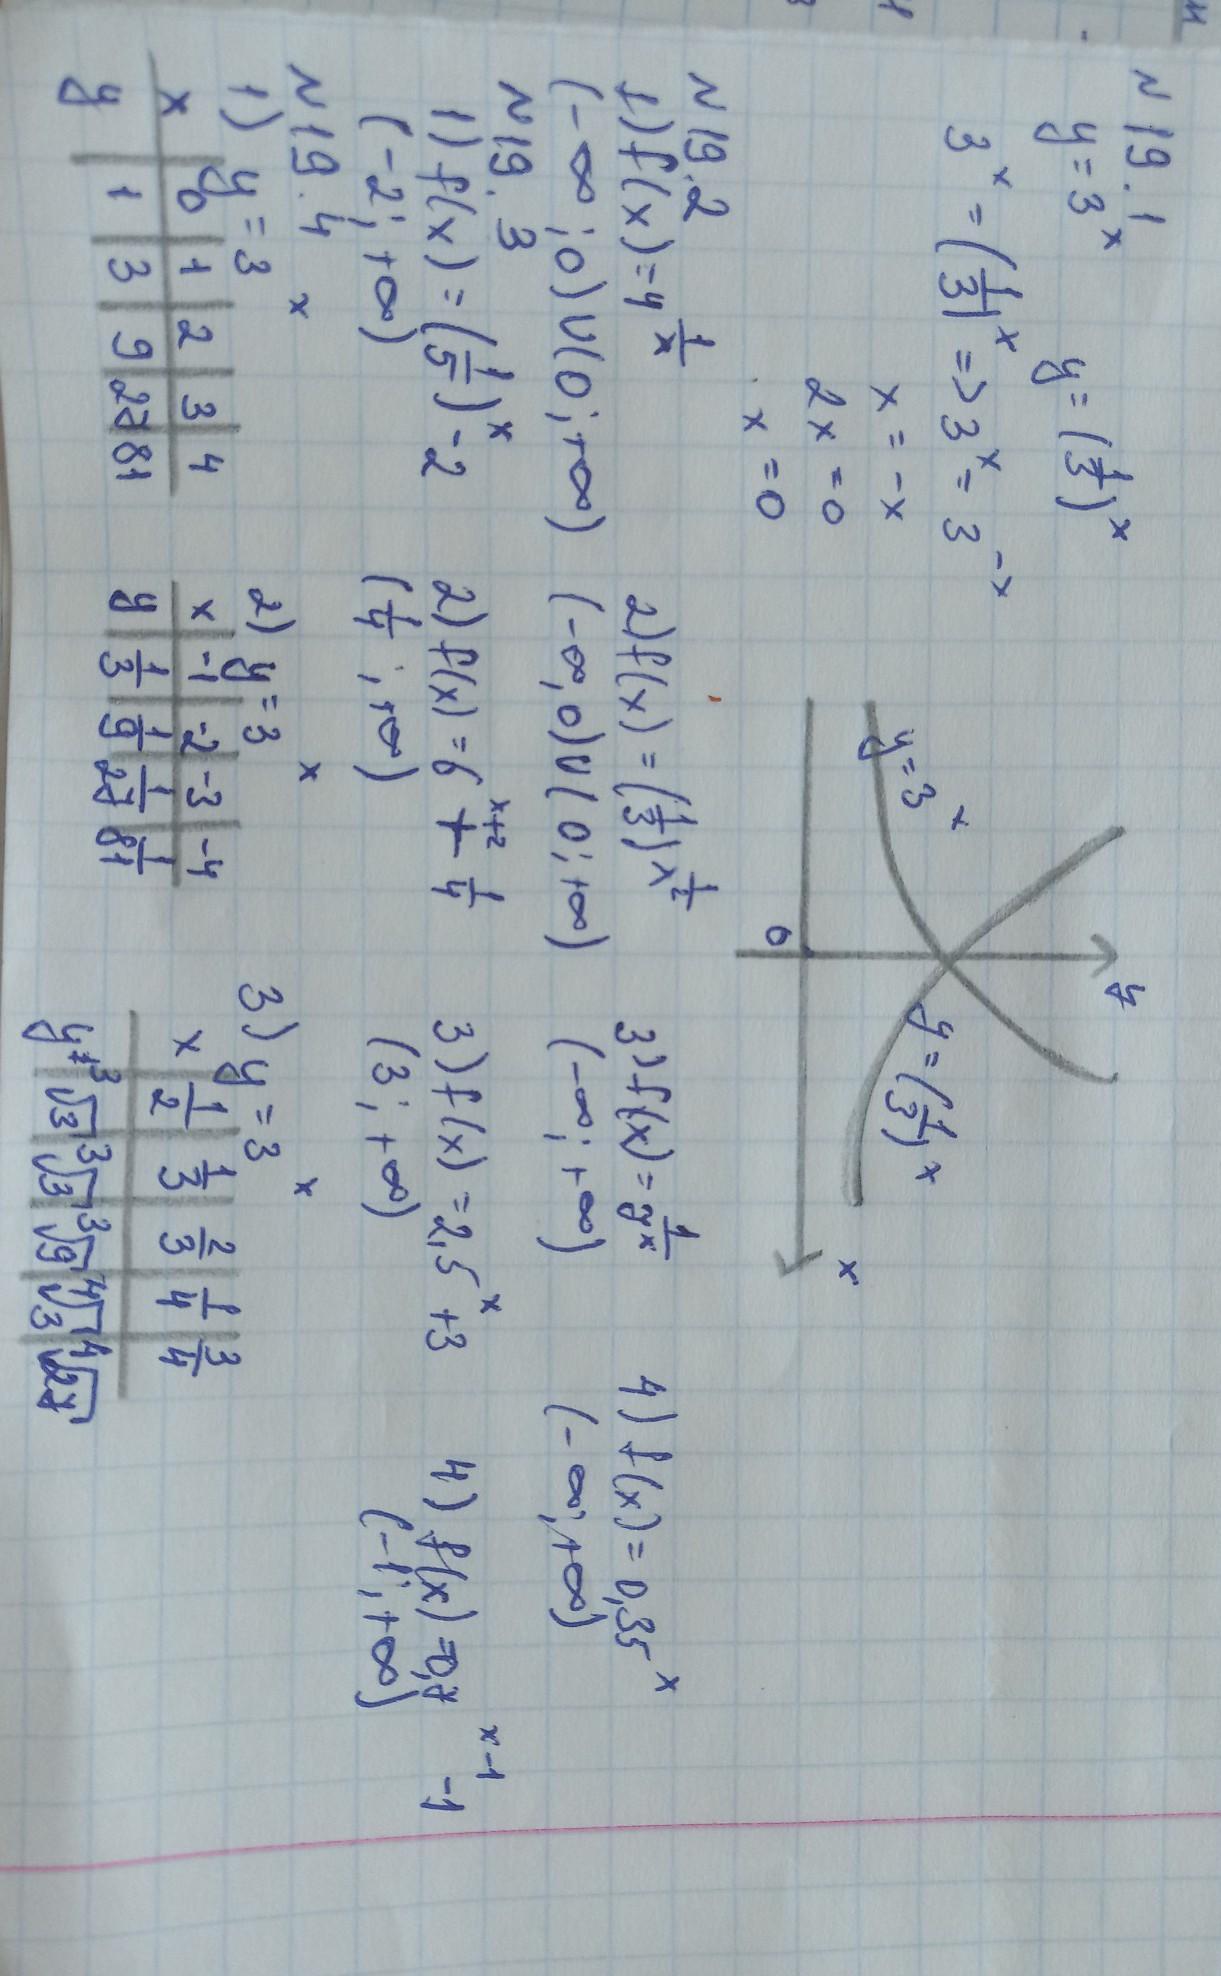 N 19.1
y = 3^x y = (1/3)^x
3^x = (1/3)^x => 3^x = 3^-x
x = -x
2x = 0
x = 0
y
y = 3^x
y = (1/3)^x
0
x
N 19.2
1) f(x) = 4^1/x 2) f(x) = (1/3)^x 3) f(x) = 1/x 4) f(x) = 0,35^x
(-∞; 0) ∪ (0; +∞) (-∞, 0) ∪ (0; +∞) (-∞; +∞) (-∞; +∞)
N 19.3
1) f(x) = (1/5)^x -2 2) f(x) = 6^x+2 + 1/4 3) f(x) = 2,5^x +3 4) f(x) = 0,7^x-1 -1
(-2; +∞) (1/4; +∞) (3; +∞) (-1; +∞)
N 19.4
1) y = 3^x 2) y = 3^x 3) y = 3^x
x 0 1 2 3 4
y 1 3 9 27 81
x -1 -2 -3 -4
y 1/3 1/9 1/27 1/81
x 1/2 1/3 2/3 1/4 3/4
y √3 ³√3 ³√9 ⁴√3 ⁴√27